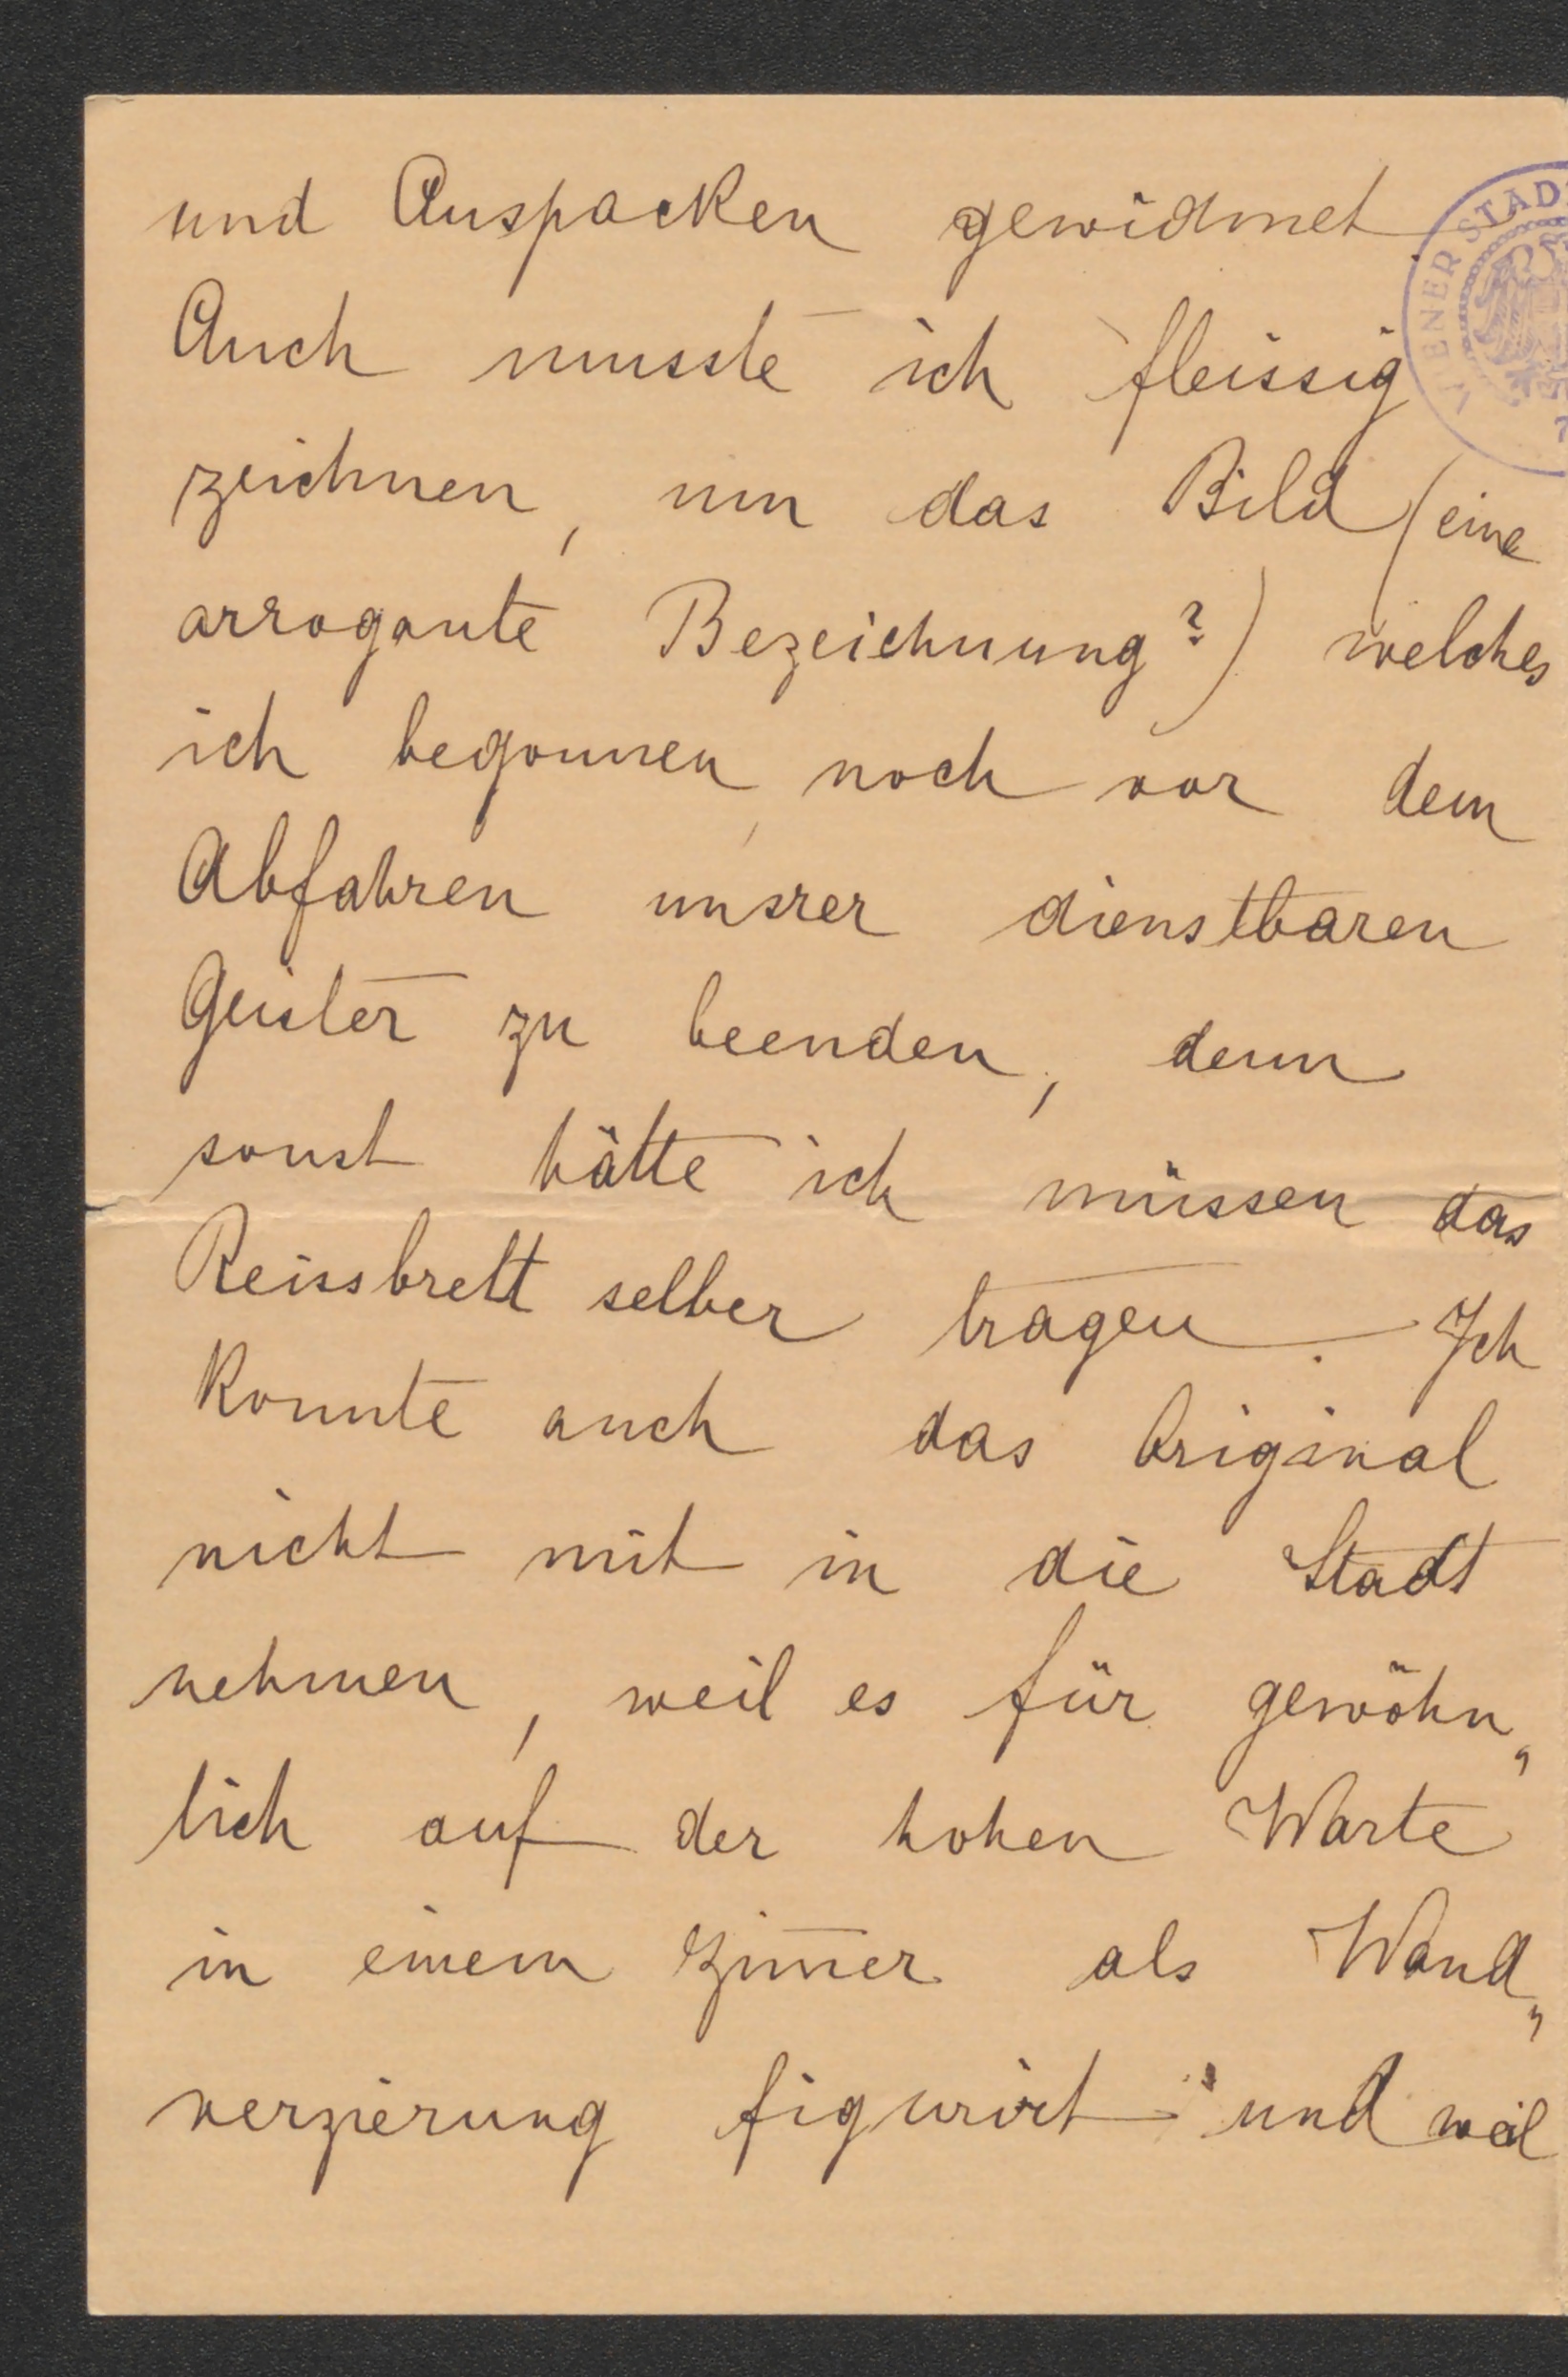 und Auspacken gewidmet.
Auch musste ich fleissig
zeichnen, um das Bild (eine
arrogante Bezeichnung?) welches
ich begonnen, noch vor dem
Abfahren unsrer dienstbaren
Geister zu beenden, denn
sonst hätte ich müssen das
Reissbrett selber tragen. Ich
konnte auch das Original
nicht mit in die Stadt
nehmen, weil es für gewöhn„
lich auf der hohen Warte
in einem Zim̅er als Wand„
verzierung figurirt und weil
WIENER STAD
7